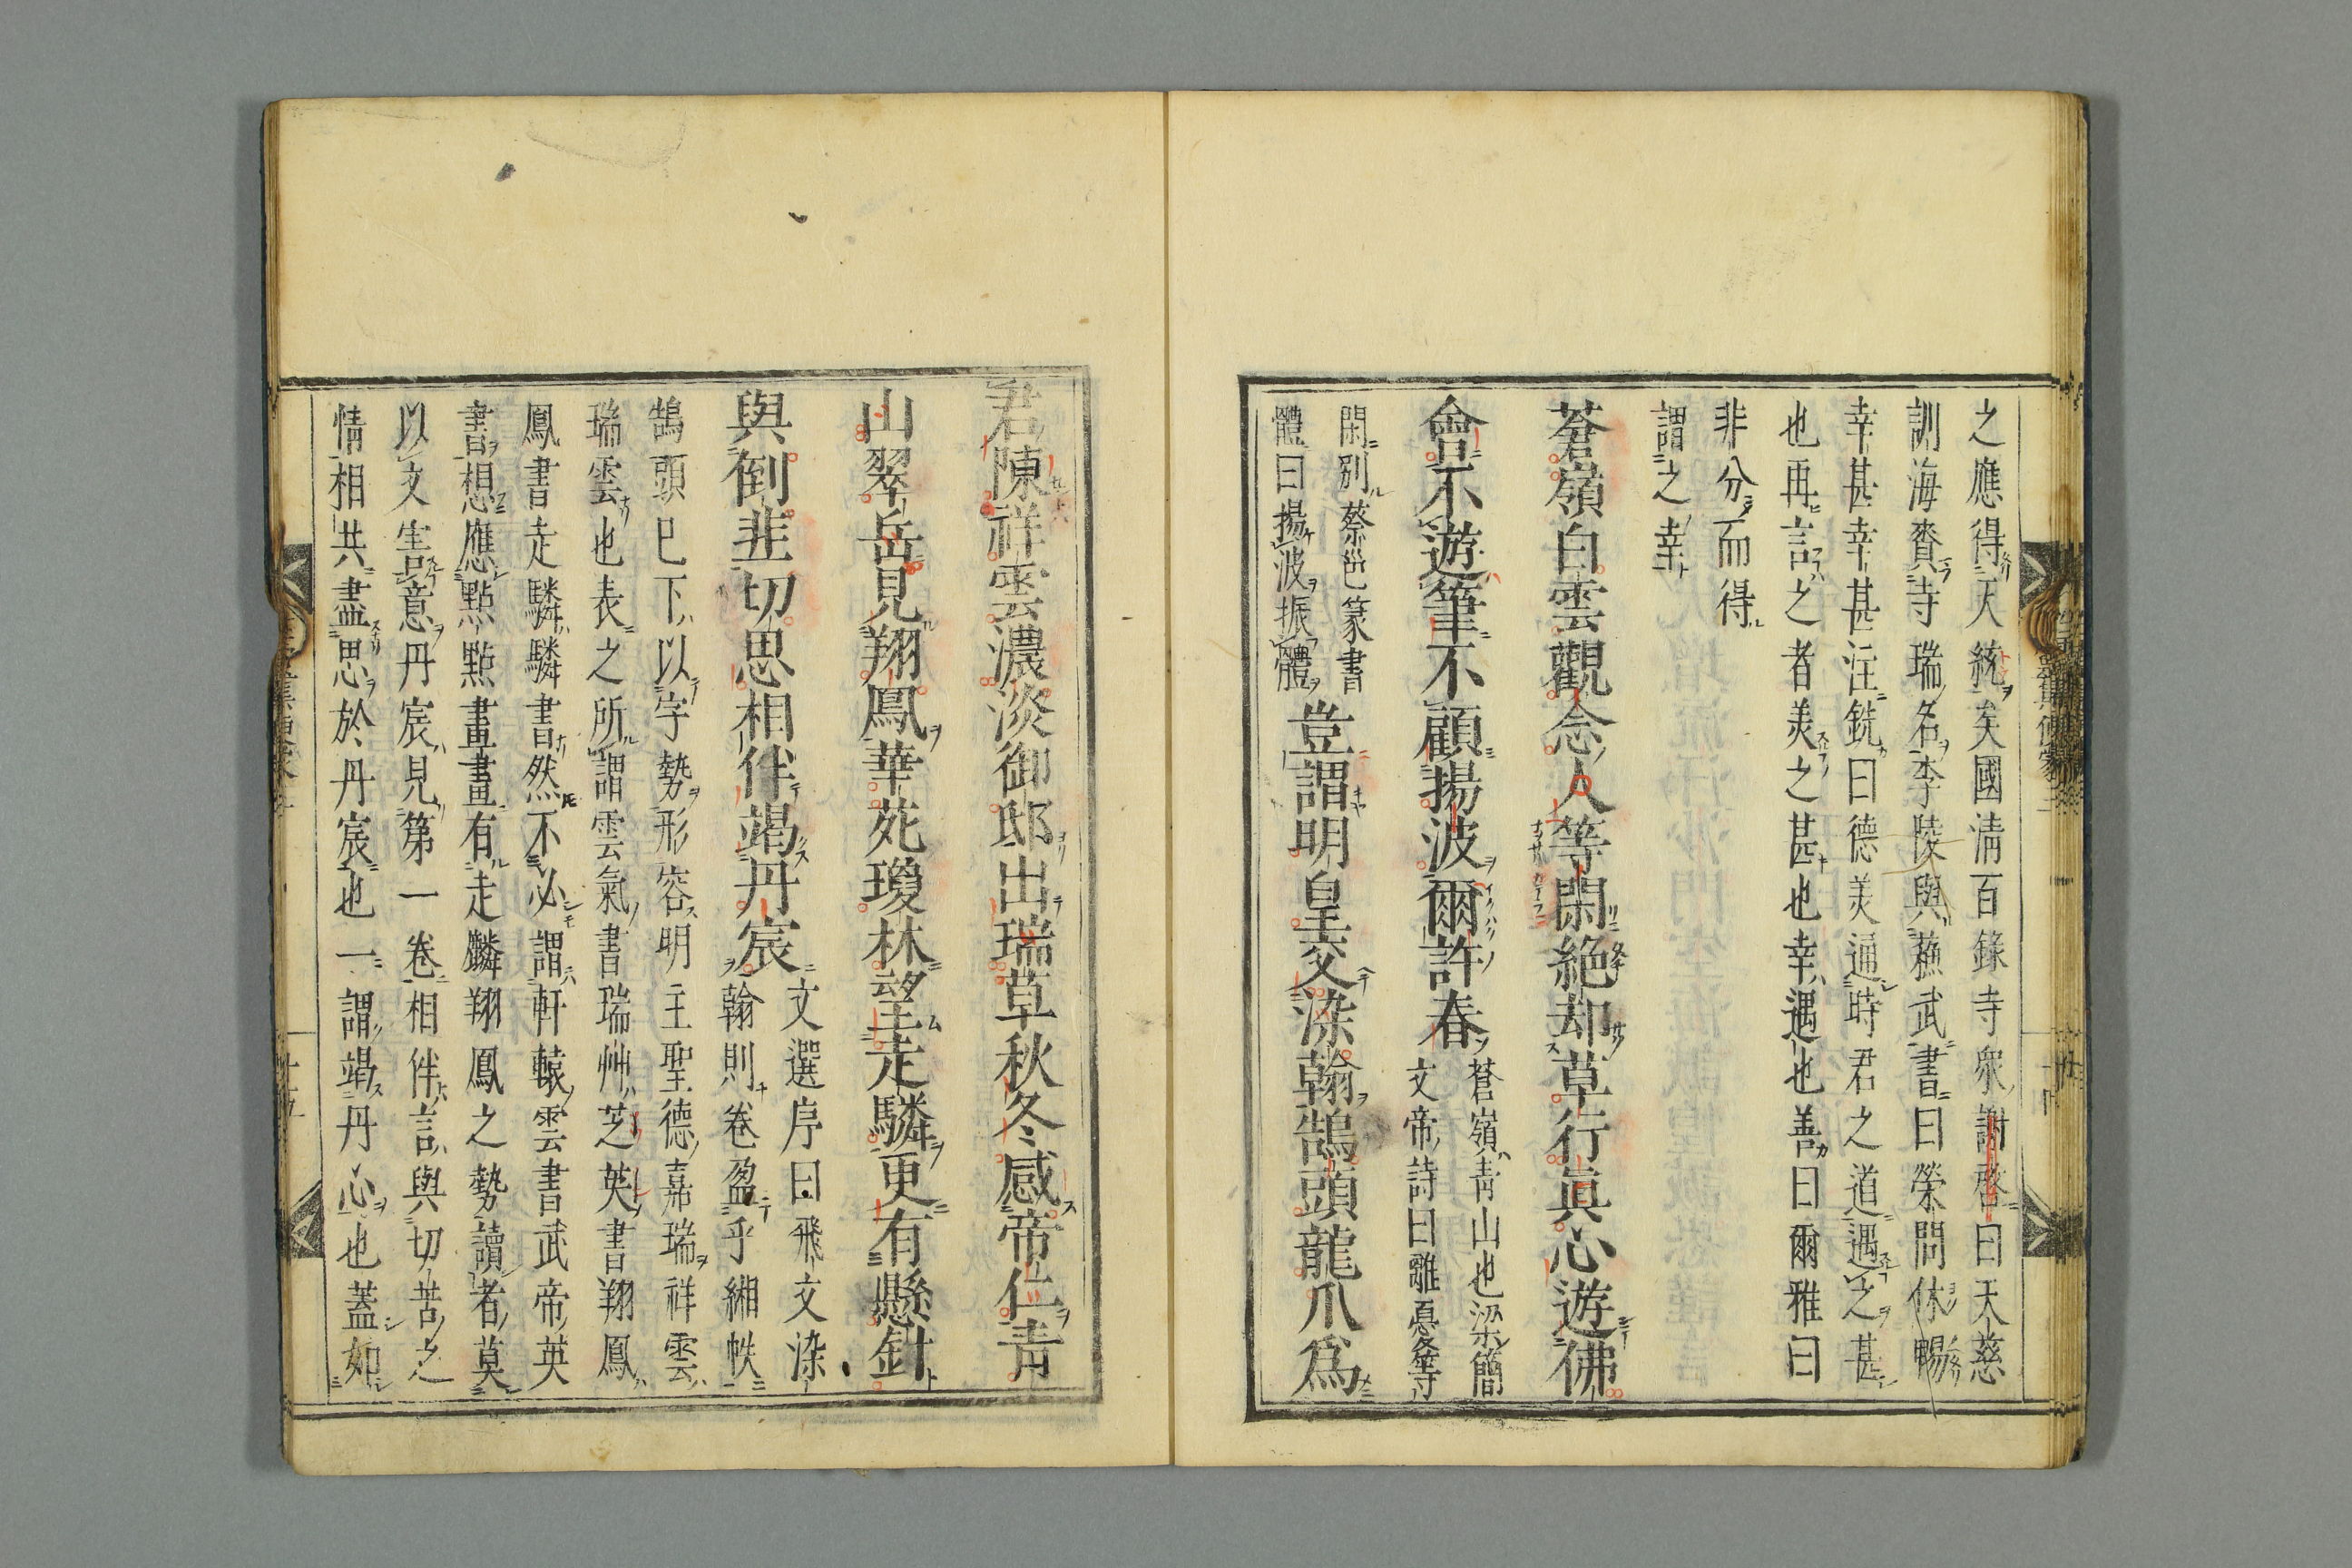 之應得天統矣國清百錄寺衆謝啓曰天慈
訓海賚寺瑞名李陵與蘓武書曰榮問休暢
幸甚幸甚注銑曰德美通時君之道遇之甚
也再言之者美之甚也幸遇也善曰爾雅曰
非分而得
謂之幸
蒼嶺白雲觀念人等閑絶却草行眞心遊佛
會不遊筆不顧揚波爾許春
蒼嶺青山也梁簡
文帝詩曰離憂等
閑別蔡邕篆書
體曰揚波振體
豈謂明皇交染翰鵠頭龍爪爲
君陳祥雲濃淡御邸出瑞草秋冬感帝仁青
山翠岳見翔鳳華苑瓊林望走驎更有懸針
與倒韭切思相伴竭丹宸
文選序曰飛文染
翰則卷盈乎緗帙
鵠頭巳下以字勢形容明主聖德嘉瑞祥雲
瑞雲也表之所謂雲氣書瑞艸芝英書翔鳳
鳳書走驎驎書然不必謂軒轅雲書武帝英
書想應點點畫畫有走麟翔鳳之勢讀者莫
以文害意丹宸見第一卷相伴言與切苦之
情相共盡思於丹宸也一謂竭丹心也蓋如